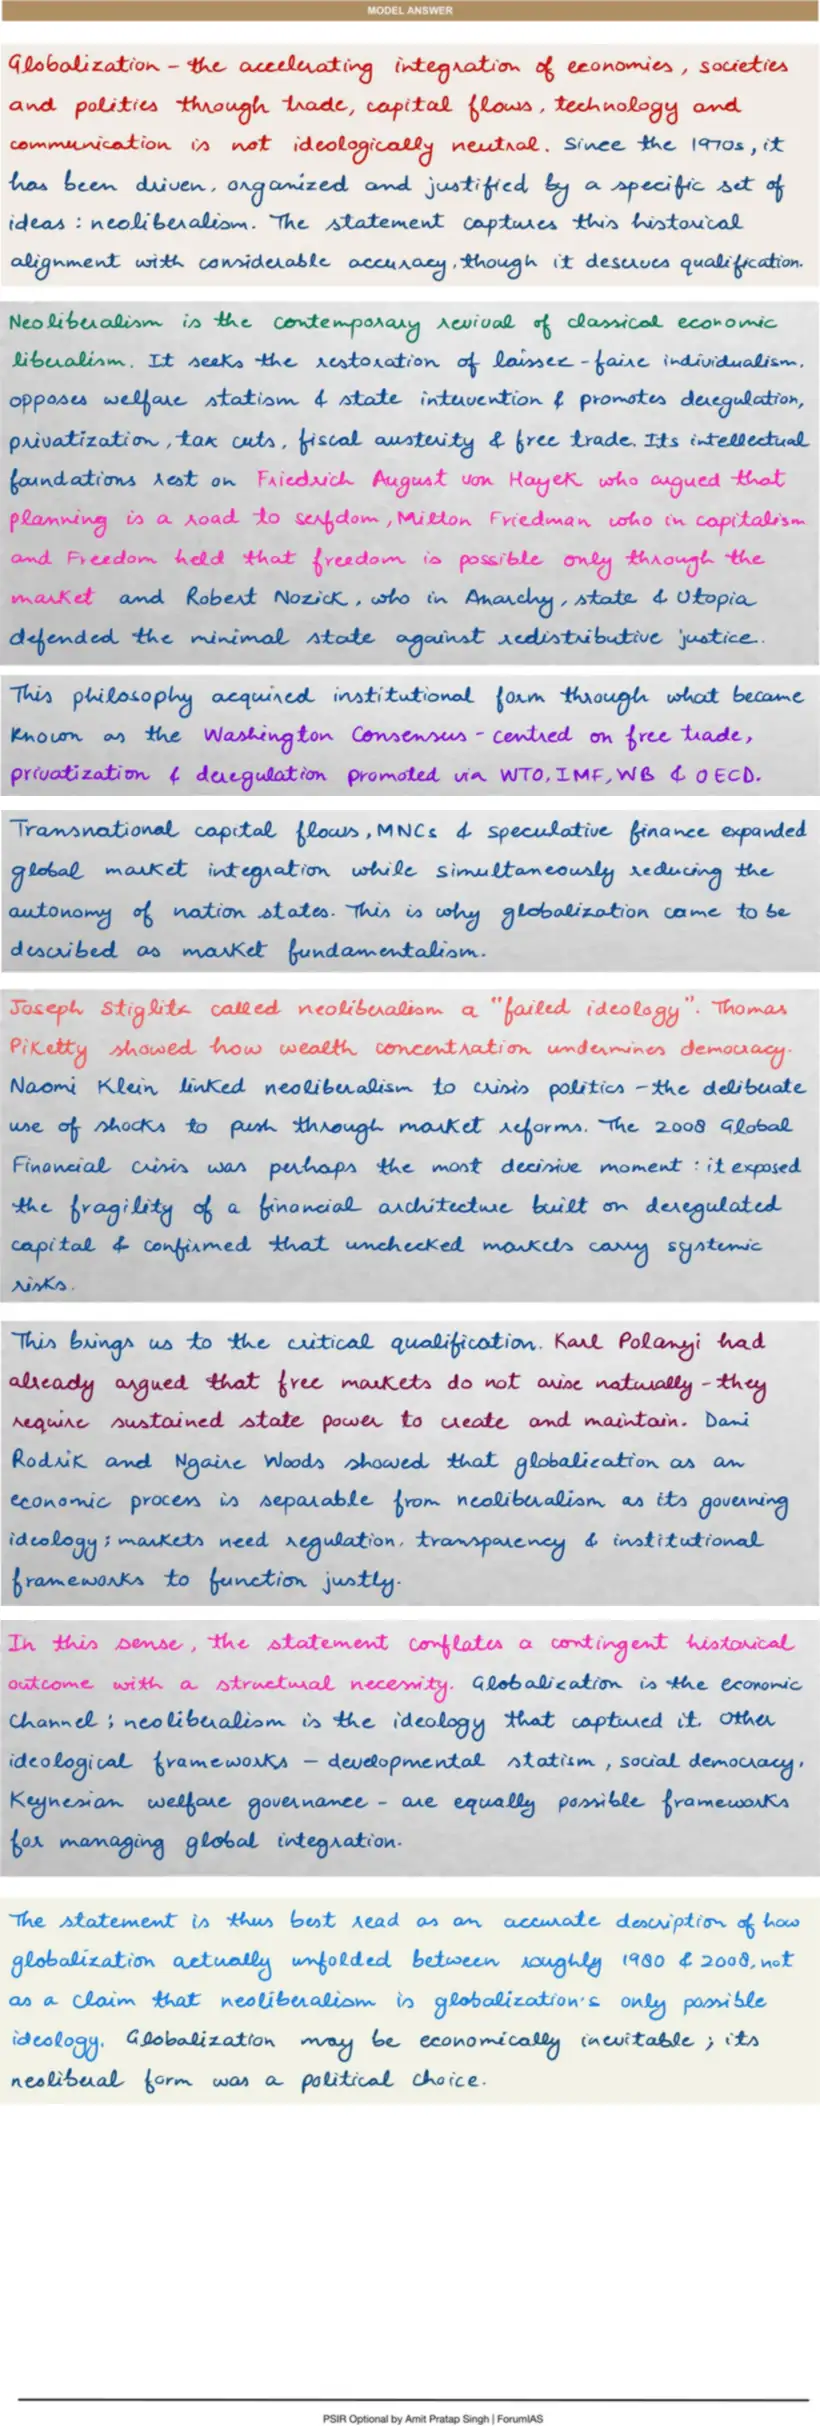 MODEL ANSWER
Globalization - the accelerating integration of economies, societies
and polities through trade, capital flows, technology and
communication is not ideologically neutral. Since the 1970s, it
has been driven, organized and justified by a specific set of
ideas : neoliberalism. The statement captures this historical
alignment with considerable accuracy, though it deserves qualification.
Neoliberalism is the contemporary revival of classical economic
liberalism. It seeks the restoration of laissez-faire individualism,
opposes welfare statism & state intervention & promotes deregulation,
privatization, tax cuts, fiscal austerity & free trade. Its intellectual
foundations rest on Friedrich August von Hayek who argued that
planning is a road to serfdom, Milton Friedman who in capitalism
and Freedom held that freedom is possible only through the
market and Robert Nozick, who in Anarchy, state & Utopia
defended the minimal state against redistributive justice.
This philosophy acquired institutional form through what became
known as the Washington Consensus - centred on free trade,
privatization & deregulation promoted via WTO, IMF, WB & OECD.
Transnational capital flows, MNCs & speculative finance expanded
global market integration while simultaneously reducing the
autonomy of nation states. This is why globalization came to be
described as market fundamentalism.
Joseph Stiglitz called neoliberalism a "failed ideology". Thomas
Piketty showed how wealth concentration undermines democracy.
Naomi Klein linked neoliberalism to crisis politics - the deliberate
use of shocks to push through market reforms. The 2008 Global
Financial crisis was perhaps the most decisive moment : it exposed
the fragility of a financial architecture built on deregulated
capital & confirmed that unchecked markets carry systemic
risks.
This brings us to the critical qualification. Karl Polanyi had
already argued that free markets do not arise naturally - they
require sustained state power to create and maintain. Dani
Rodrik and Ngaire Woods showed that globalization as an
economic process is separable from neoliberalism as its governing
ideology; markets need regulation, transparency & institutional
frameworks to function justly.
In this sense, the statement conflates a contingent historical
outcome with a structural necessity. Globalization is the economic
channel; neoliberalism is the ideology that captured it. Other
ideological frameworks - developmental statism, social democracy,
Keynesian welfare governance - are equally possible frameworks
for managing global integration.
The statement is thus best read as an accurate description of how
globalization actually unfolded between roughly 1980 & 2008, not
as a claim that neoliberalism is globalization's only possible
ideology. Globalization may be economically inevitable; its
neoliberal form was a political choice.
PSIR Optional by Amit Pratap Singh | ForumIAS